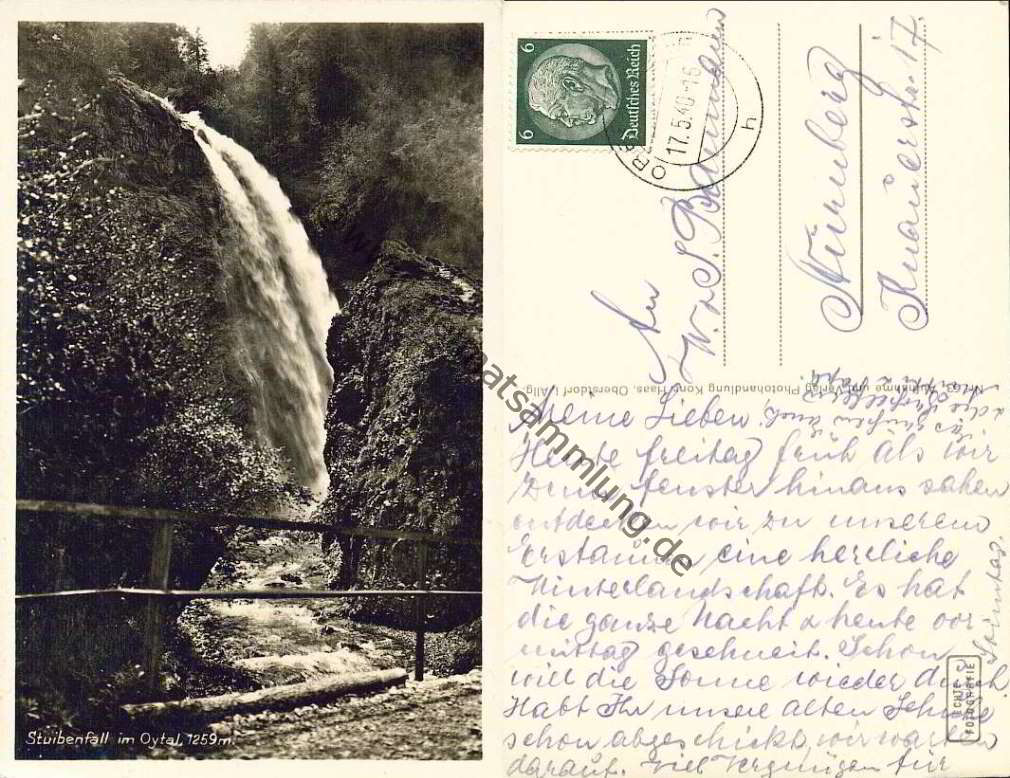 Stuibenfall im Oytal, 1259m.
Deutsches Reich
6 6
17.5.40.-16
h
An
W. u. S. Baumann
Nürnberg
Knauerstr. 17
Aufnahme und Verlag Photohandlung Konr. Haas, Oberstdorf i. Allg.
Meine Lieben,
Heute freitag früh als wir
zum fenster hinaus sahen
entdeckten wir zu unserem
Erstaunen eine herrliche
Winterlandschaft. Es hat
die ganze Nacht & heute vor
mittag geschneit. Schon
will die Sonne wieder durch
Habt Ihr unsere alten Schuhe
schon abgeschickt, wir warten
darauf. Viel Vergnügen für
Sonntag.
ECHTE
FOTOGRAFIE
ansichtskartensammlung.de